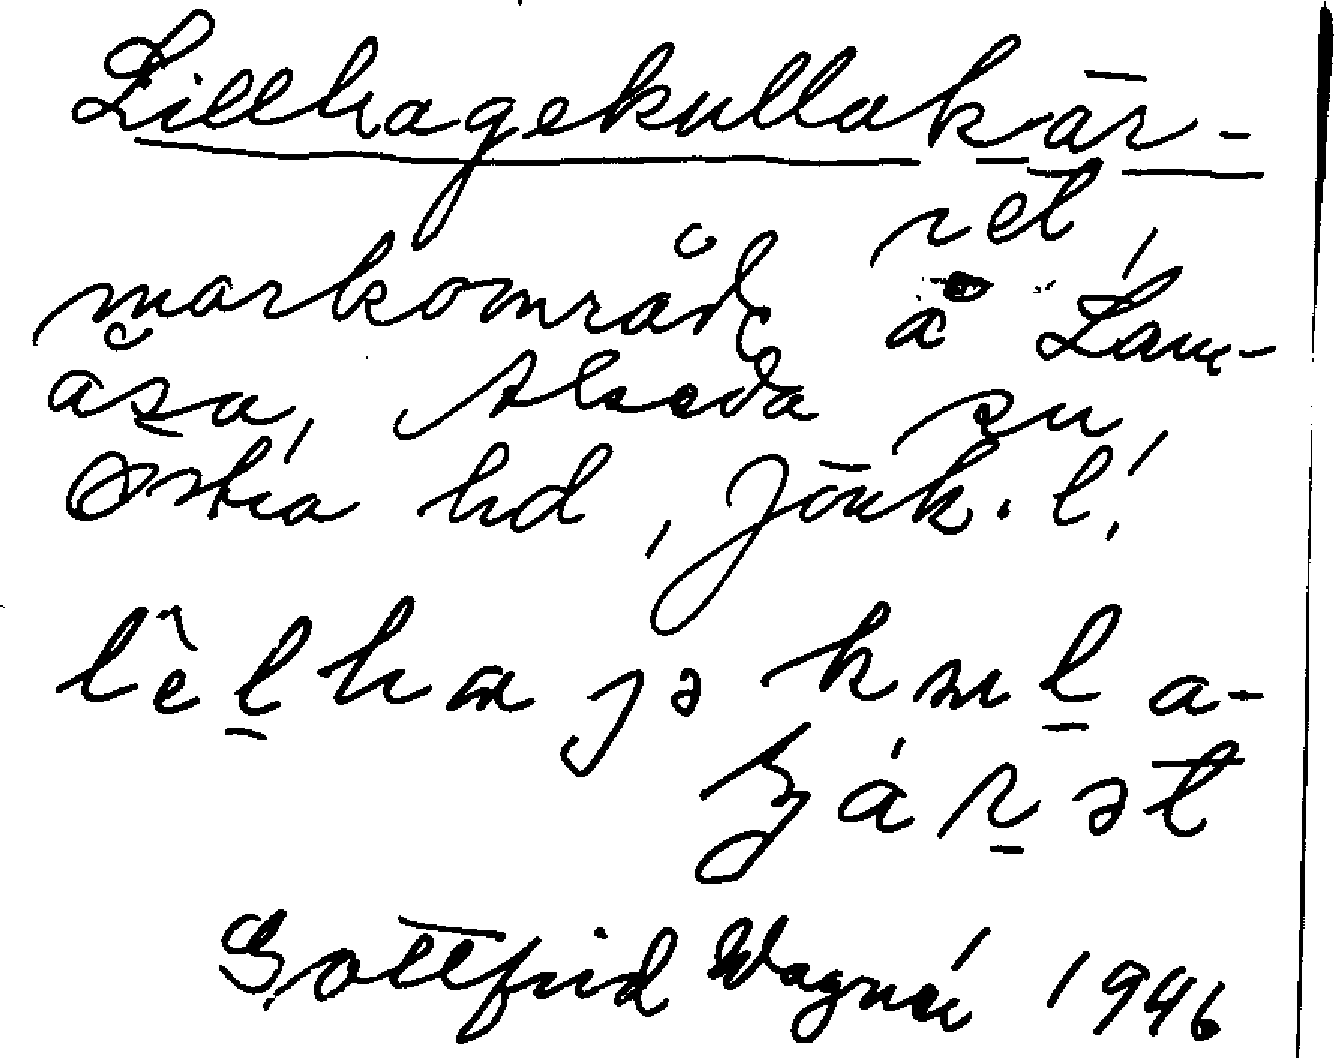 Lillhagekullakär-
ret,
markområde å Lam-
åsa, Alseda sn,
Östra hd, Jönk. l.
Gottfrid Wagnér 1946